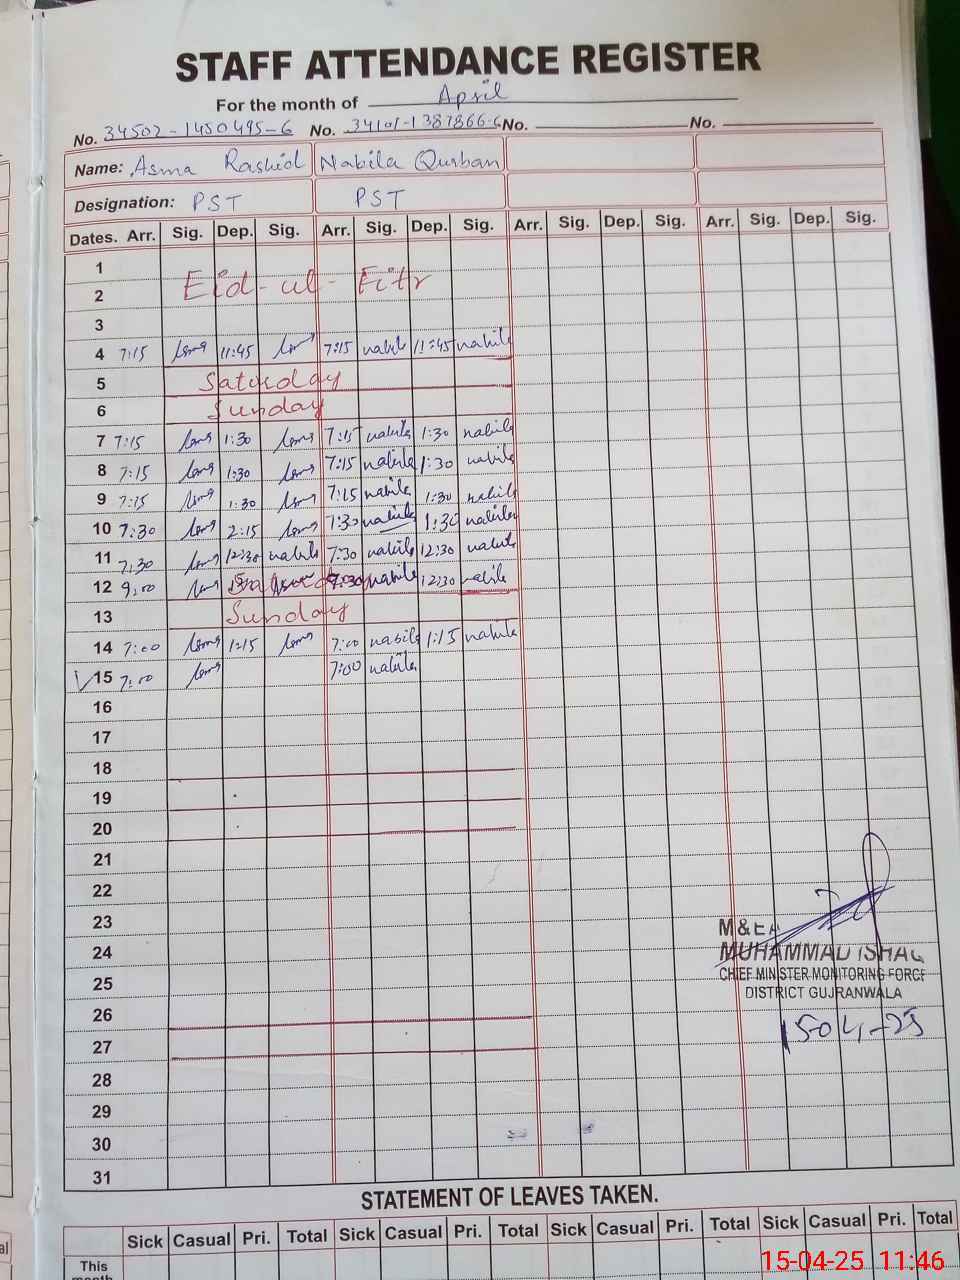 STAFF ATTENDANCE REGISTER
For the month of April
No. 34502-1450495-6 No. 34101-1387866-6 No. No.
Name: Asma Rashid Nabila Qurban
Designation: PST PST
Dates. Arr. Sig. Dep. Sig. Arr. Sig. Dep. Sig. Arr. Sig. Dep. Sig. Arr. Sig. Dep. Sig.
1
2 Eid-ul-Fitr
3
4 7:15 11:45 7:15 nabila 11:45 nabila
5 Saturday
6 Sunday
7 7:15 1:30 7:15 nabila 1:30 nabila
8 7:15 1:30 7:15 nabila 1:30 nabila
9 7:15 1:30 7:15 nabila 1:30 nabila
10 7:30 2:15 7:30 nabila 1:30 nabila
11 7:30 12:30 nabila 7:30 nabila 12:30 nabila
12 9:00 7:30 nabila 12:30 nabila
13 Sunday
14 7:00 1:15 7:00 nabila 1:15 nabila
15 7:00 7:00 nabila
16
17
18
19
20
21
22
23
24
25
26
27
28
29
30
31
M&EA
MUHAMMAD ISHAQ
CHIEF MINISTER MONITORING FORCE
DISTRICT GUJRANWALA
15-04-25
STATEMENT OF LEAVES TAKEN.
Sick Casual Pri. Total Sick Casual Pri. Total Sick Casual Pri. Total Sick Casual Pri. Total
This
month
15-04-25 11:46